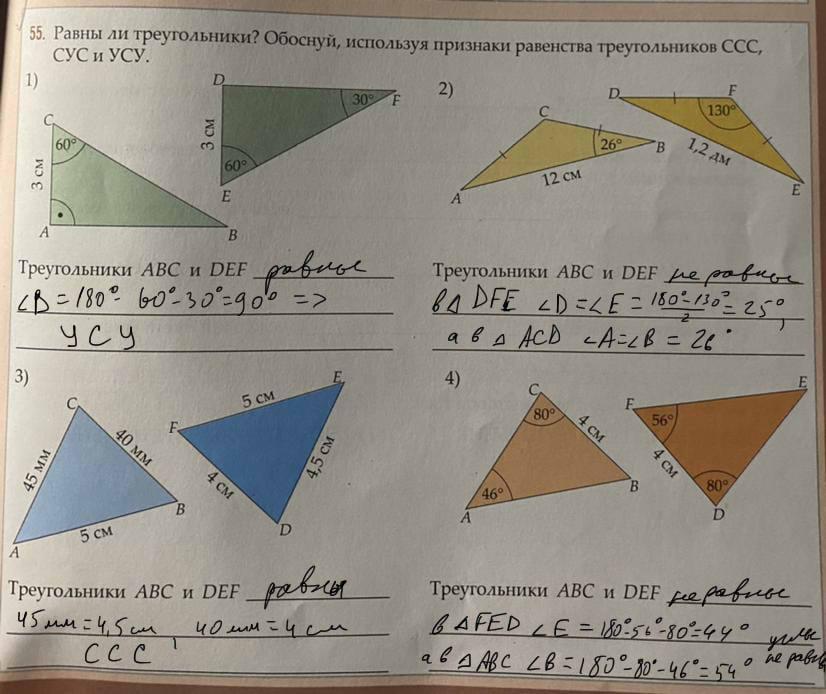 55. Равны ли треугольники? Обоснуй, используя признаки равенства треугольников ССС,
СУС и УСУ.
1)
C
60°
3 см
A
B
D
30°
F
3 см
60°
E
2)
C
26°
B
12 см
A
D
F
130°
1,2 дм
E
Треугольники ABC и DEF равные
∠B = 180° - 60° - 30° = 90° =>
УСУ
Треугольники ABC и DEF не равные
в △ DFE ∠D = ∠E = (180° - 130°)/2 = 25°,
а в △ ACD ∠A = ∠B = 26°
3)
C
45 мм
40 мм
B
5 см
A
E
5 см
F
4 см
4,5 см
D
4)
C
80°
4 см
46°
B
A
E
F
56°
4 см
80°
D
Треугольники ABC и DEF равны
45 мм = 4,5 см, 40 мм = 4 см
ССС
Треугольники ABC и DEF не равные
в △ FED ∠E = 180° - 56° - 80° = 44° углы
а в △ ABC ∠B = 180° - 80° - 46° = 54° не равны